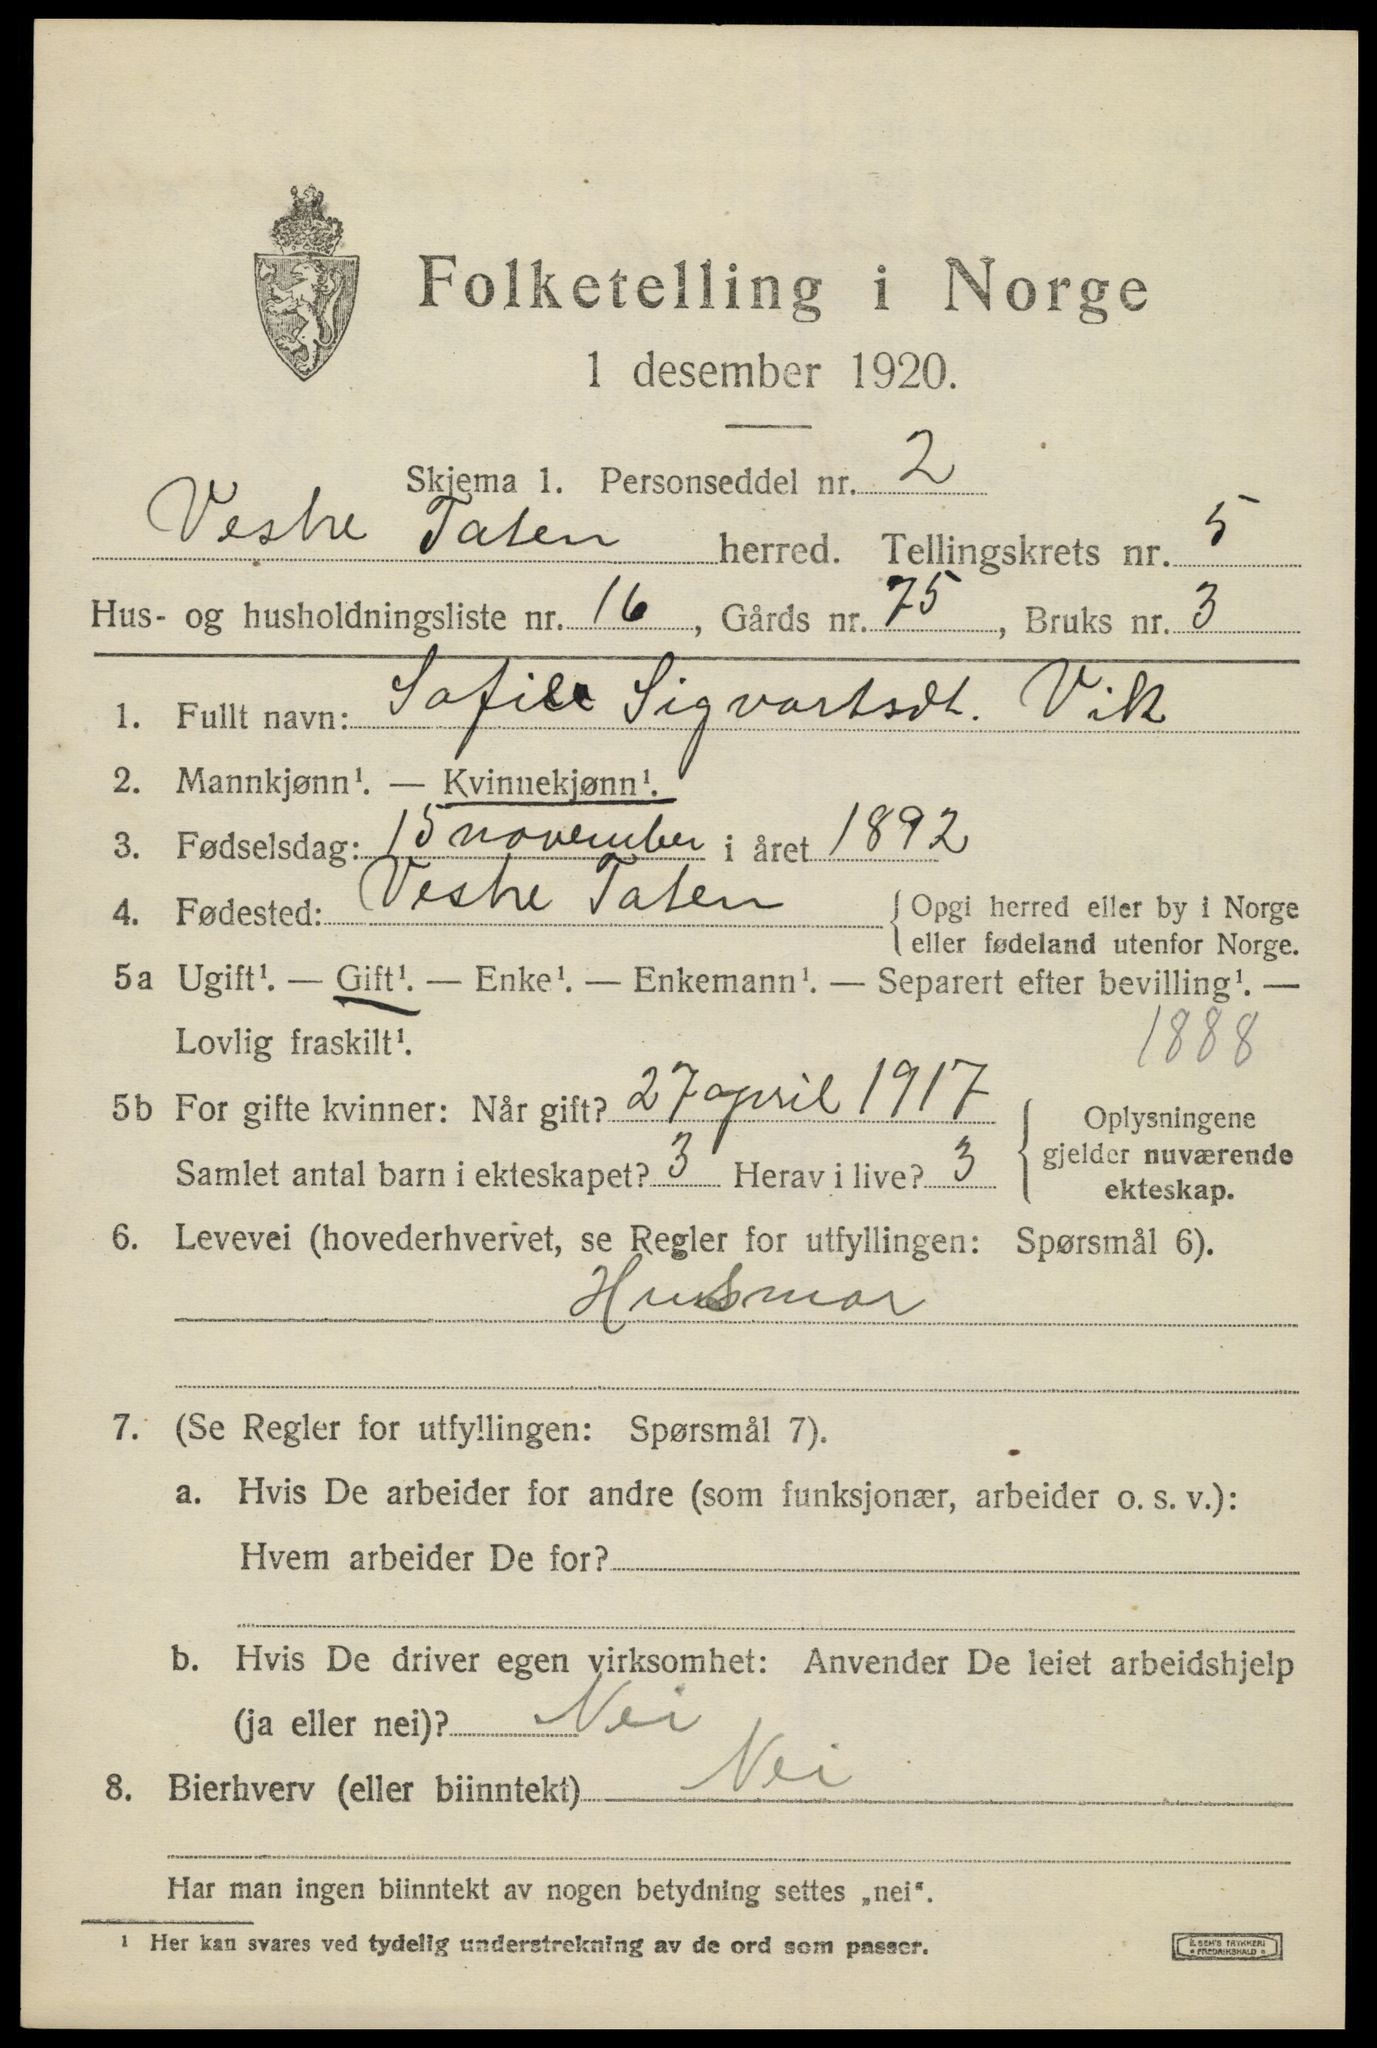 Folketelling i Norge
1 desember 1920.
Skjema 1. Personseddel nr. 2
Vestre Toten herred. Tellingskrets nr. 5
Hus- og husholdningsliste nr. 16, Gårds nr. 75, Bruks nr. 3
1. Fullt navn: Sofie Sigvartsdt. Vik
2. Mannkjønn¹. — Kvinnekjønn¹.
3. Fødselsdag: 15 november i året 1892
4. Fødested: Vestre Toten { Opgi herred eller by i Norge
eller fødeland utenfor Norge.
5a Ugift¹. — Gift¹. — Enke¹. — Enkemann¹. — Separert efter bevilling¹. —
Lovlig fraskilt¹. 1888
5b For gifte kvinner: Når gift? 27 april 1917 { Oplysningene
Samlet antal barn i ekteskapet? 3 Herav i live? 3 gjelder nuværende
ekteskap.
6. Levevei (hovederhvervet, se Regler for utfyllingen: Spørsmål 6).
Husmor
7. (Se Regler for utfyllingen: Spørsmål 7).
a. Hvis De arbeider for andre (som funksjonær, arbeider o. s. v.):
Hvem arbeider De for?
b. Hvis De driver egen virksomhet: Anvender De leiet arbeidshjelp
(ja eller nei)? Nei
8. Bierhverv (eller biinntekt) Nei
Har man ingen biinntekt av nogen betydning settes „nei“.
¹ Her kan svares ved tydelig understrekning av de ord som passer.
E. SEM'S TRYKKERI
• FREDRIKSHALD •